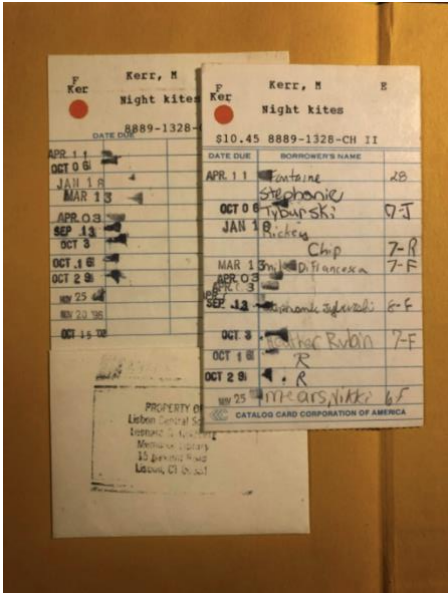 F
Ker
Kerr, M
Night kites
8889-1328-
DATE DUE
APR 11
OCT 06
JAN 18
MAR 13
APR 03
SEP. 13
OCT 3
OCT. 16
OCT 29
NOV 25
NOV 20 '95
OCT 15
PROPERTY OF
Lisbon Central
Library
15
Lisbon, CT
F
Ker
Kerr, M
Night kites
$10.45 8889-1328-CH II
DATE DUE BORROWER'S NAME
APR. 11 Fontaine
Stephanie
OCT 06 Tyburski 7-J
JAN 18 Rickey
Chip 7-R
MAR 13 DiFrancesca 7-F
APR 03
SEP. 13
OCT 3. Heather Rubin 7-F
OCT 16 R
OCT 29 R
NOV 25 mears, Nikki 6F
CATALOG CARD CORPORATION OF AMERICA